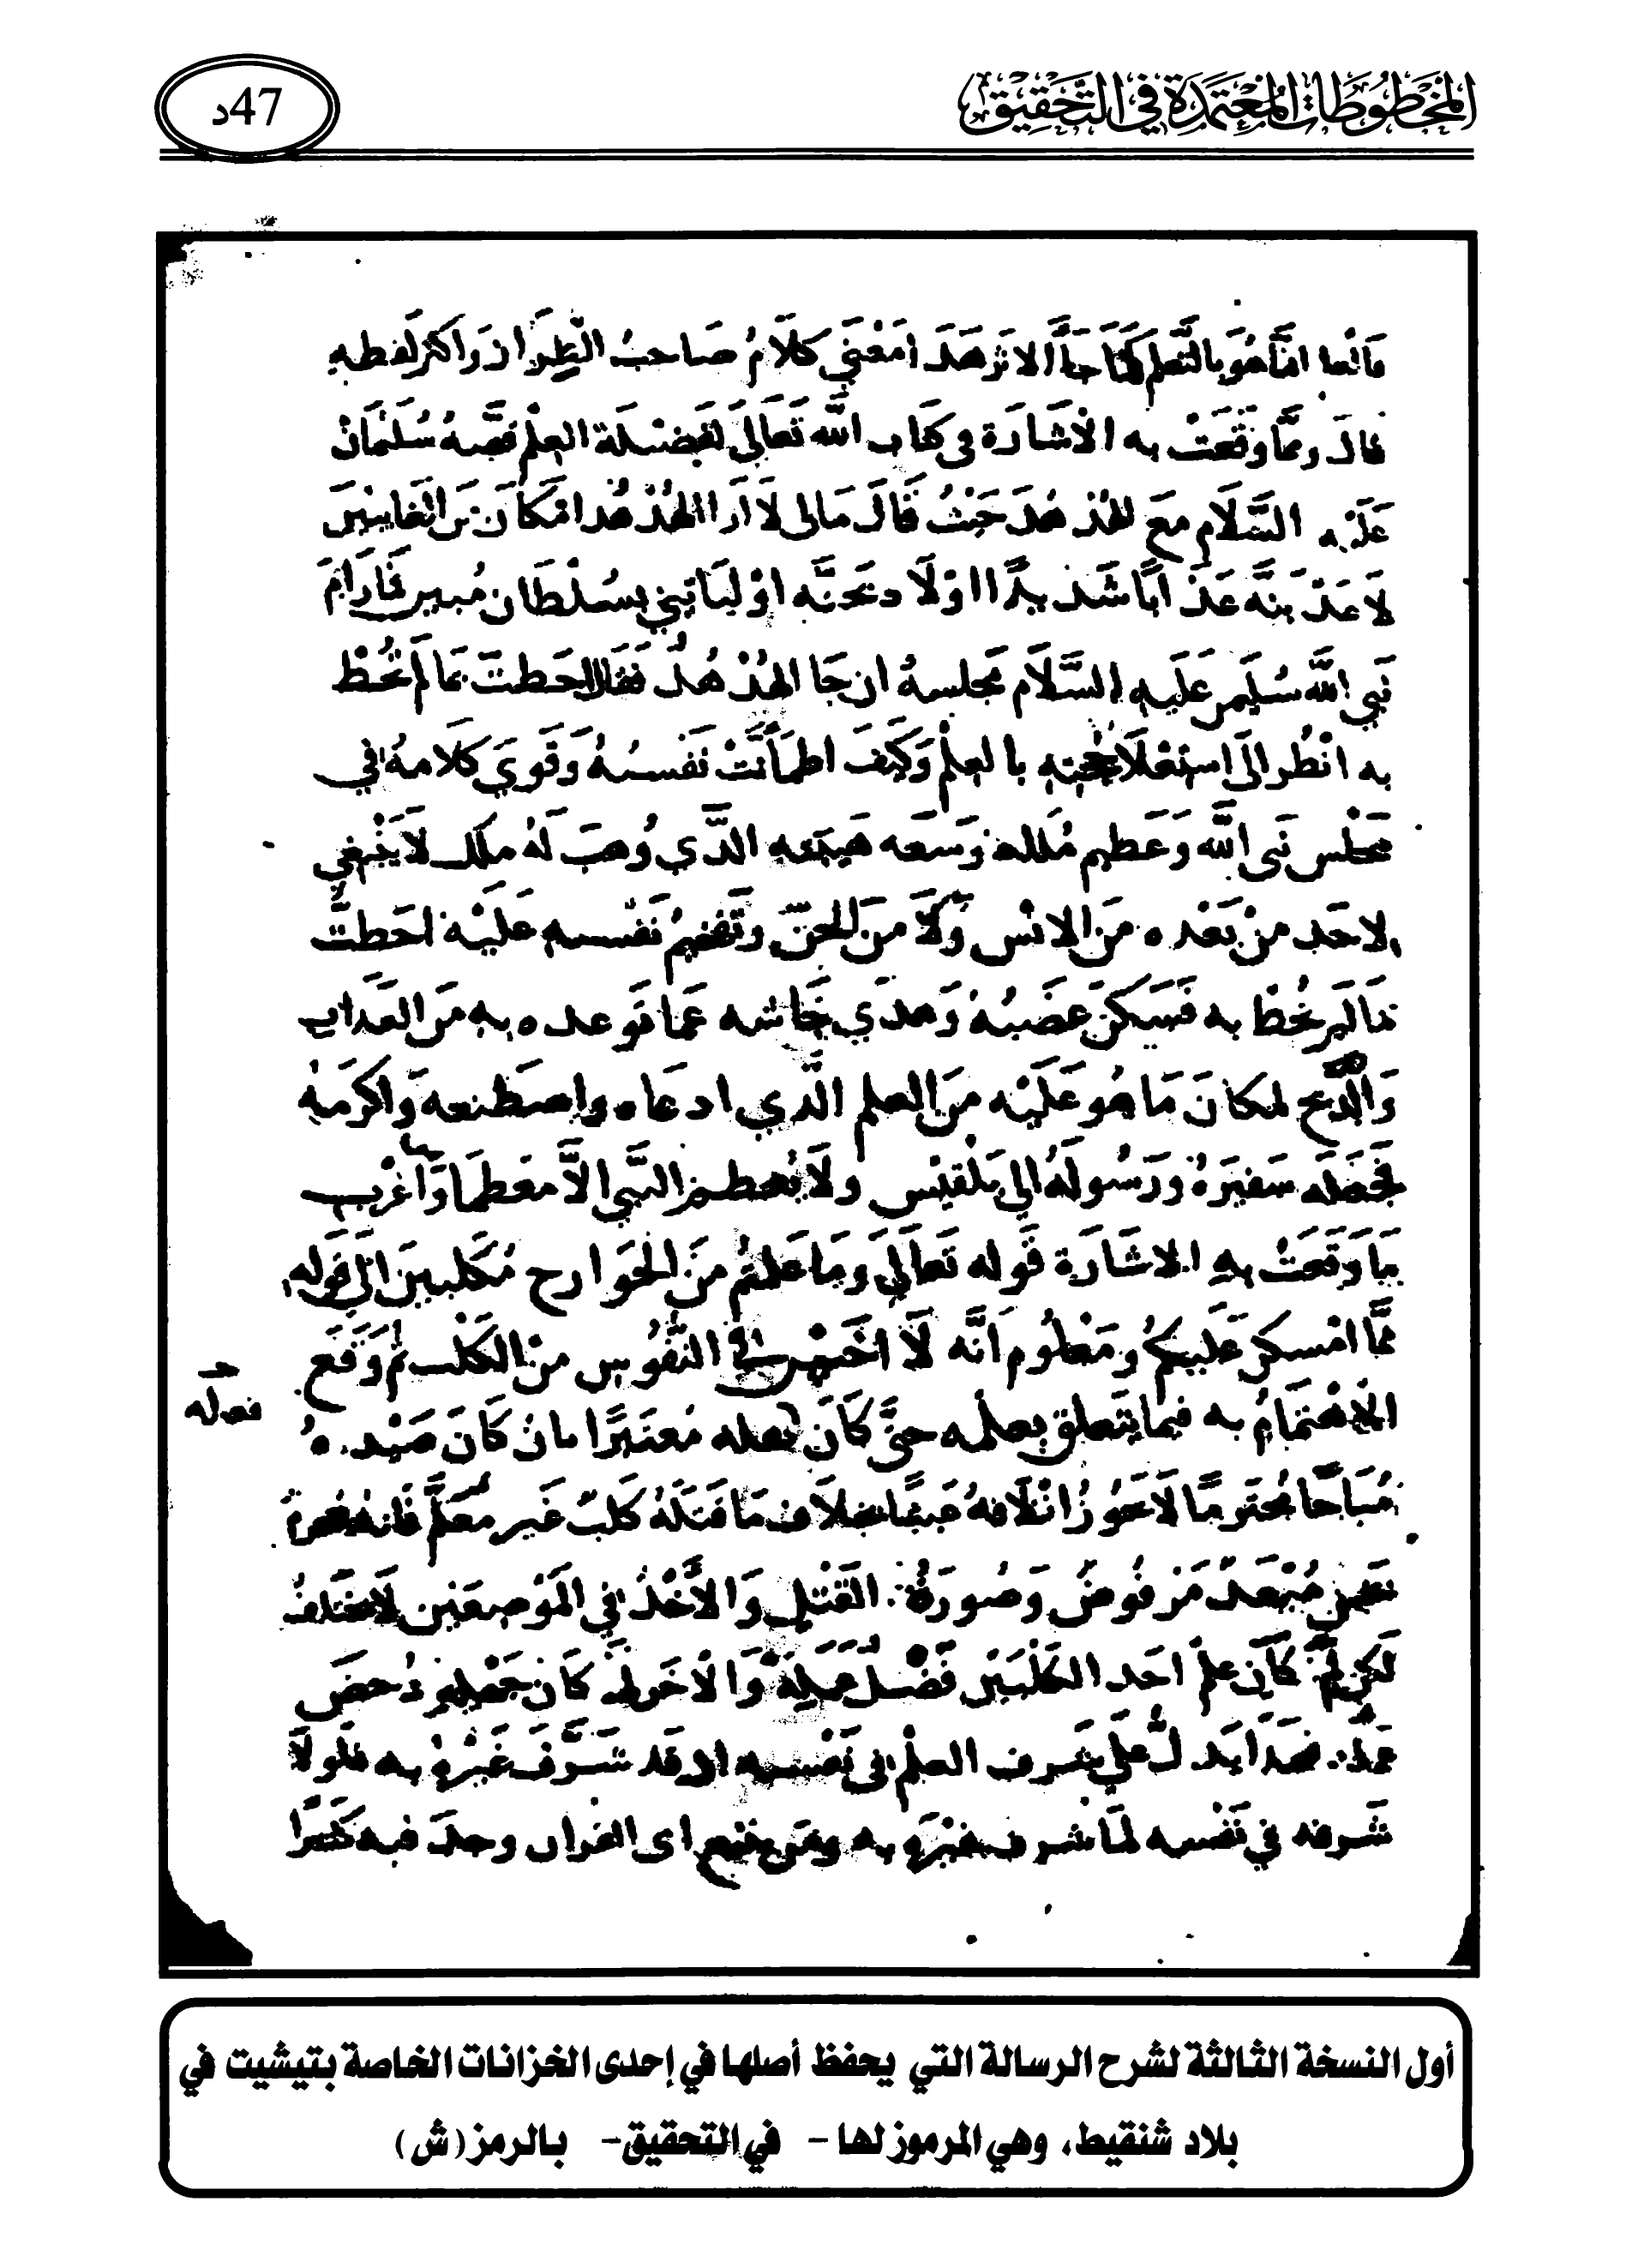 المخطوطات المعتمدة في التحقيق
47د
قال ومما وقعت به الاشارة في كتاب الله تعالى لفضيلة العلم قصة سليمان
عليه السلام مع الهدهد حيث قال مالى لا ارا الهدهد ام كان من الغايبين
لاعذبنه عذابا شديدا اولا دبحنه او لياتيني بسلطان مبين فما رام
نبي الله سليمن عليه السلام مجلسه ان جا الهدهد فقال احطت بما لم تحط
به انظر الى استعلا بالعلم وكيف اطمأنت نفسه وقوي كلامه في
مجلس نبى الله وعظيم ملكه وسعه هيبته الذي وهب له ملك لا ينبغي
لاحد من بعده من الانس ولا من الجن نفسه عليه احطت
بما لم تحط به فسكن غضبه وهدي جاشه عما توعده به من العداب
والذبح لمكان ما هو عليه من العلم الذي ادعاه واصطنعه واكرمه
فجعله سفيره ورسوله الي بلقيس ولا يعظم النبي الا معظما واغرب
ما وقعت به الاشارة قوله تعالي وما علمتم من الجوارح مكلبين الى قوله
مما امسكن عليكم ومعلوم انه لا اخس في النفوس من الكلب ثم وقع
الاهتمام به فيما يتعلق بعلمه حتى كان فعله معتبرا بان كان صيده
فعله صح
مباحا محترما لا يجوز اتلافه عبثا بخلاف ما قتله كلب غير معلم فانه
نجس مبعد مرفوض وصورة القتل والأخذ في الموضعين لا تختلف
لكن لما كان علم احد الكلبين فضل عمله والاخر لما كان جهل دحض
عمله فهدا يدل على شرف العلم في نفسه اد قد شرف غيره به فلولا
شرفه في نفسه لما شرف غيره به ومن تتبع اى القران وجد فيه كثيرا
أول النسخة الثالثة لشرح الرسالة التي يحفظ أصلها في إحدى الخزانات الخاصة بتيشيت في
بلاد شنقيط، وهي المرموز لها - في التحقيق- بالرمز (ش)